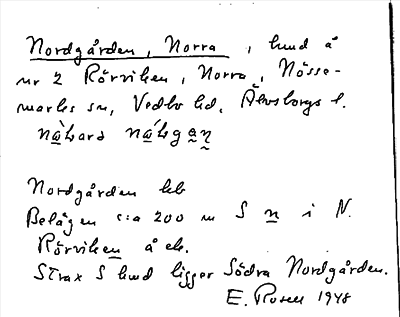 Nordgården, Norra, hmd å
nr 2 Rörviken, Norra, Nösse-
marks sn, Vedbo hd, Älvsborgs l.
Nordgården hb
Belägen c:a 200 m S n i N.
Rörviken å ek.
Strax S hmd ligger Södra Nordgården.
E. Rosell 1948